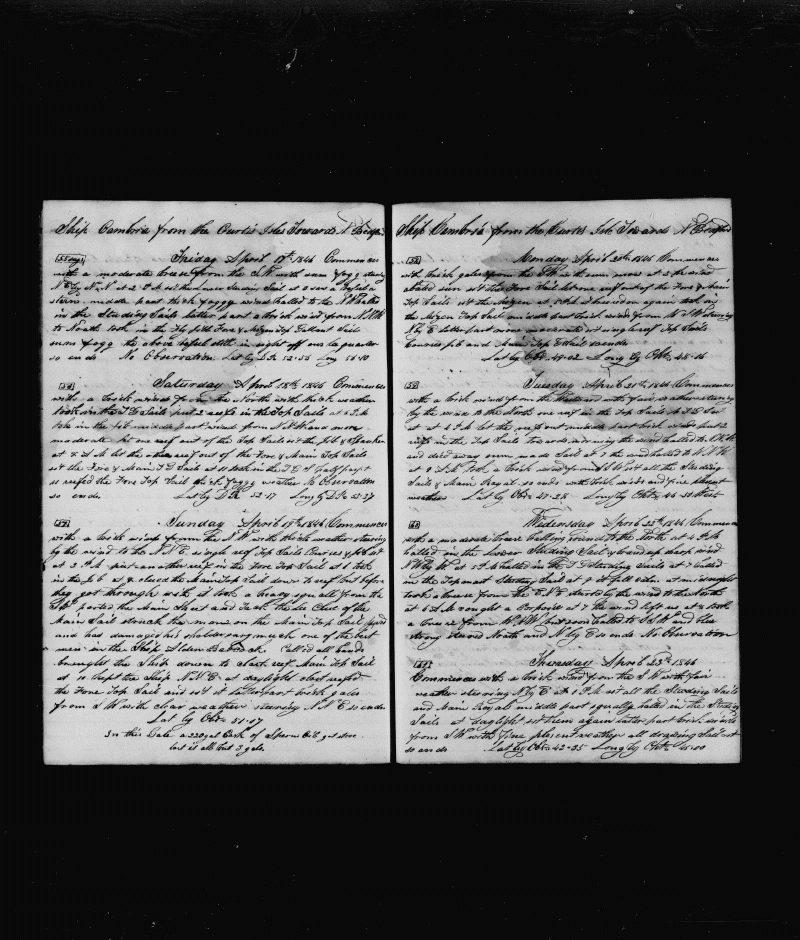 Ship Cambria from the Curtis Isles Towards N Bedford
Friday April 17th 1846 Commences
with a moderate breeze from the SW with some fogg steering
N E by N at 2 P M
stern middle part thick foggy wind hauled to the N W hauled
in the Studding Sails latter part a brisk wind from N N W
to North took in the Fore & Mizen Top Gallant Sail
some fogg the above still in sight off our la quarter
so ends No Observation Lat by D R 52-55 Long 58-40
58 Saturday April 18th 1846 Commences
with a brisk wind from the North with thick weather
took in the T G Sails put 2 reefs in the Top Sails at 6 P M
took in the jib middle part wind from N N W and more
moderate let one reef out of the Top Sails set the jib & Spanker
at 8 A M let the other reef out of the Fore & Main Top Sails
set the Fore & Main T G Sails at 11 took in the T G S
reefed the Fore Top Sail thick foggy weather No Observation
so ends Lat by D R 52-17 Long by D R 55-37
57 Sunday April 19th 1846 Commences
with a brisk wind from the N W with thick weather steering
by the wind to the N N E single reef Top Sails Courses & jib set
at 3 P M put another reef in the Fore Top Sail at 6 took
in the jib at 8 clued the Main Top Sail down to reef but before
they got through with it took a heavy squall from the
SW parted the Main Sheet and Tack the lee Clue of the
Main Sail struck the man on the Main Top Sail yard
and has damaged his shoulder very much one of the best
men in the Ship Alden Babcock Call'd all hands
brought the Ship down to close reef Main Top Sail
at 10 kept the Ship N N E at daylight close reefed
the Fore Top Sail and set it latter part brisk gales
from S W with clear weather steering N N E so ends
Lat by Obs 51-07
In this Gale a 220 gal Cask of Sperm Oil got stove
lost it all but 3 gals
Ship Cambria from the Curtis Isle Towards N Bedford
Monday April 20th 1846 Commences
with brisk gales from the SW
Top Sails set the Mizen at 5 P M
the Mizen Top Sail middle part brisk winds from W S W steering
N by E latter part more moderate set single reef Top Sails
Courses jib and Main Top G Sail so ends
Lat by Obs 49-02 Long by Obs 48-16
59 Tuesday April 21st 1846 Commences
with a brisk wind from the Westward with fair weather steering
by the wind to the North one reef in the Top Sails
at 6 P M let the reef out middle part brisk winds put 2
reefs in the Top Sails towards morning the wind hauled to
and died away some made Sail at 7 the wind hauled to W N W
at 9 A M took a brisk wind from W S W set all the Studding
Sails & Main Royal so ends with brisk winds and fine pleasant
weather Lat by Obs 47-28 Long by Obs 46-30 West
60 Wednesday April 22d 1846 Commences
with a moderate breeze hauling round to the North at 4 P M
hauled in the Lower Studding Sail & braced up sharp wind
N W by W at 5 P M hauled in the T G Studding Sails at 7 hauled
in the Topmast Studding Sail at 9 it fell calm at midnight
took a breeze from the E N E steered by the wind to the North
at 6 A M caught a Porpoise at 7 the wind left us at 9 took
a breeze from W S W but soon hauled to S S W and blew
strong steered North and N by E so ends No Observation
61 Thursday April 23d 1846
Commences with a brisk wind from the S W with fair
weather steering N by E at 1 P M set all the Studding Sails
and Main Royal middle part squally hauled in the Studding
Sails at daylight set them again latter part brisk winds
from SW with fine pleasant weather all drawing Sail set
so ends Lat by Obs 42-35 Long by Obs 45-00